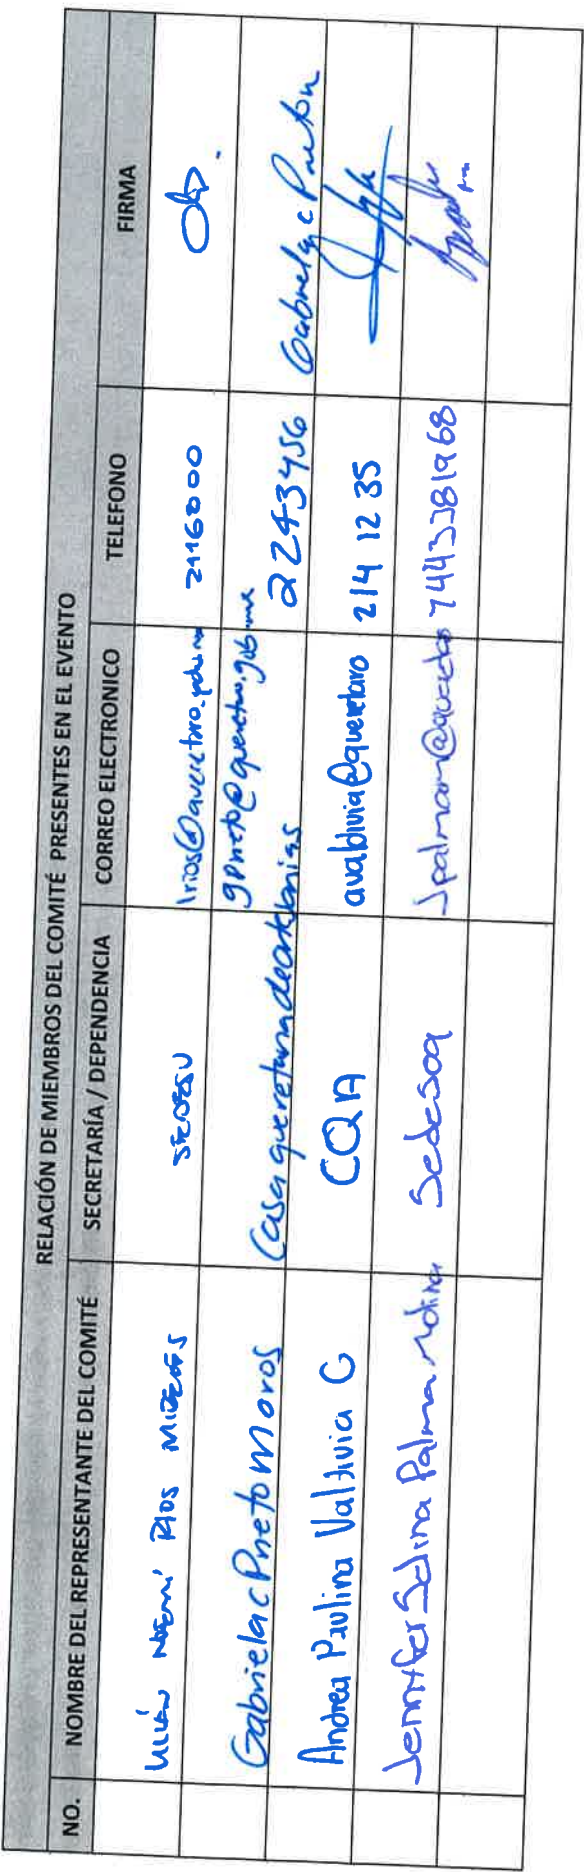 RELACIÓN DE MIEMBROS DEL COMITÉ PRESENTES EN EL EVENTO
NO. NOMBRE DEL REPRESENTANTE DEL COMITÉ SECRETARÍA / DEPENDENCIA CORREO ELECTRONICO TELEFONO FIRMA
RIOS SEDESU 2116800
Gabriela c Prieto Moros Casa queretana de artesanias gprieto@queretaro.gob.mx 2243456 Gabriela c Prieto
Andrea Paulina Valdivia G CQA avaldivia@queretaro 214 12 35
Jennyfer Selina Palma Molina Sedesoq 4433281968